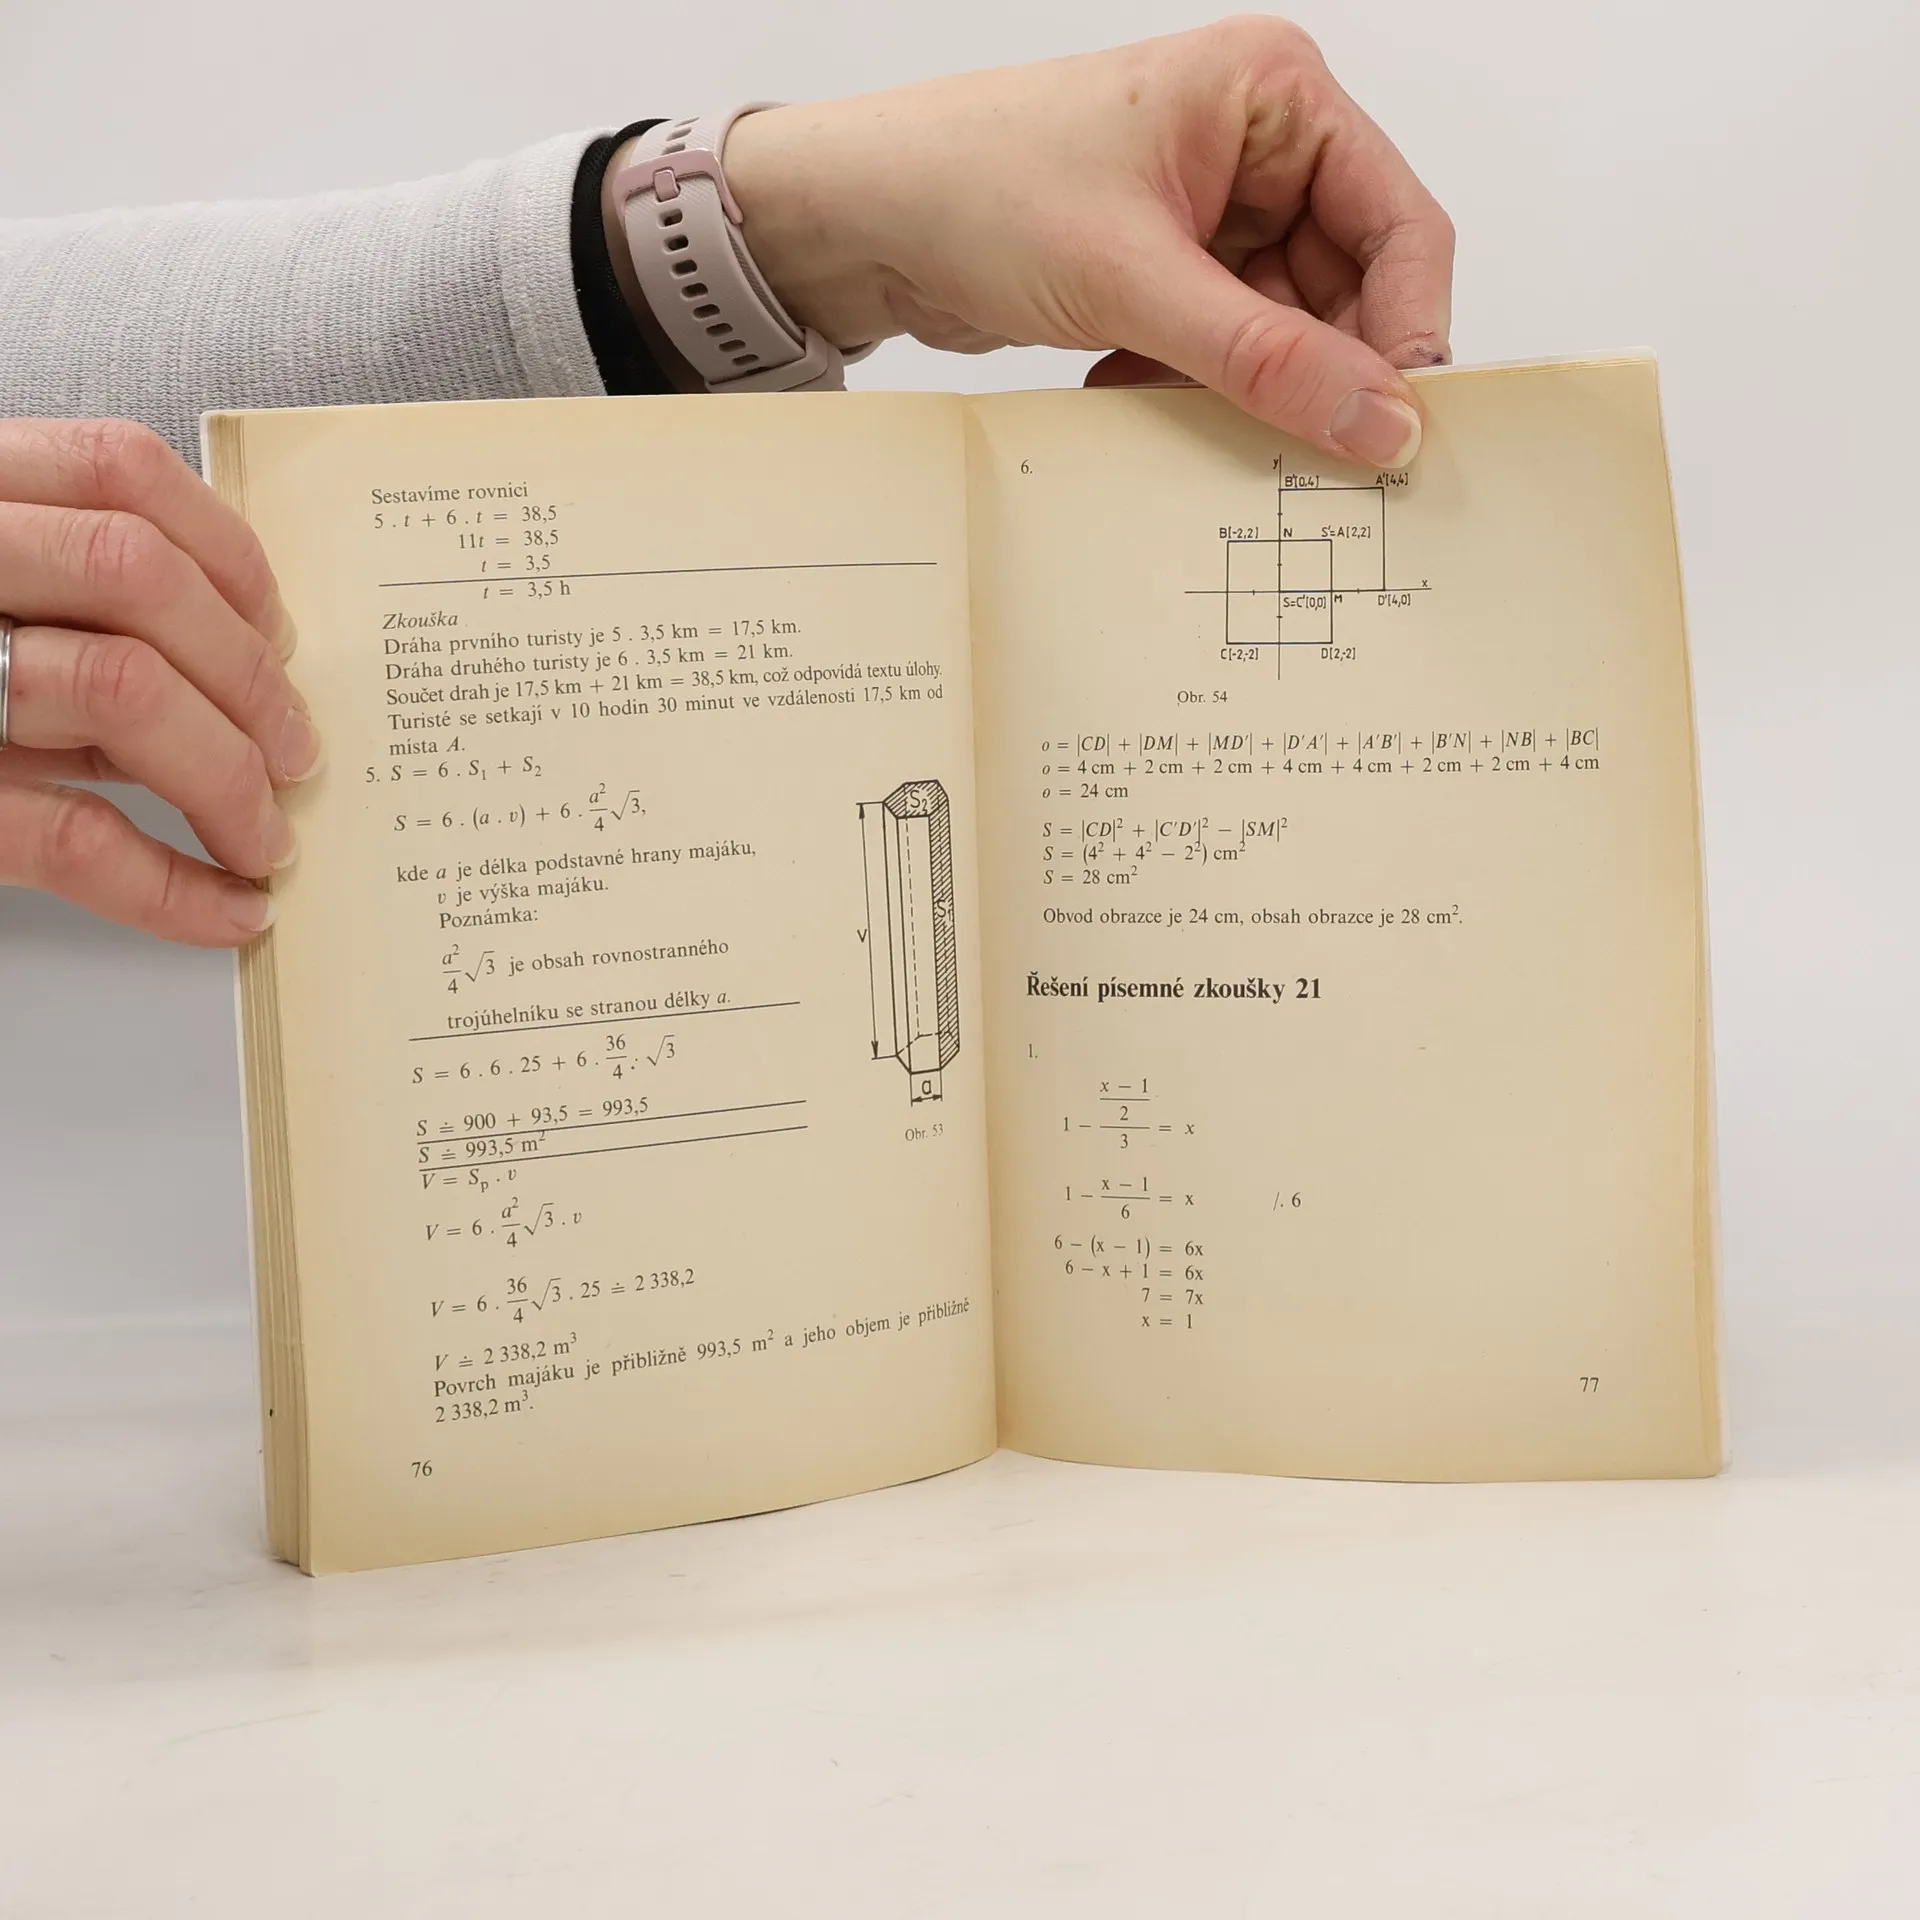 Sestavíme rovnici
5 . t + 6 . t = 38,5
11t = 38,5
t = 3,5
t = 3,5 h
Zkouška
Dráha prvního turisty je 5 . 3,5 km = 17,5 km.
Dráha druhého turisty je 6 . 3,5 km = 21 km.
Součet drah je 17,5 km + 21 km = 38,5 km, což odpovídá textu úlohy.
Turisté se setkají v 10 hodin 30 minut ve vzdálenosti 17,5 km od
místa A.
5. S = 6 . S₁ + S₂
S = 6 . (a . v) + 6 . a²/4 √3,
kde a je délka podstavné hrany majáku,
v je výška majáku.
Poznámka:
a²/4 √3 je obsah rovnostranného
trojúhelníku se stranou délky a.
S = 6 . 6 . 25 + 6 . 36/4 . √3
S ≐ 900 + 93,5 = 993,5
S ≐ 993,5 m²
V = Sₚ . v
V = 6 . a²/4 √3 . v
V = 6 . 36/4 √3 . 25 ≐ 2 338,2
V ≐ 2 338,2 m³
Povrch majáku je přibližně 993,5 m² a jeho objem je přibližně
2 338,2 m³.
S₂
S₁
v
a
Obr. 53
76
6.
y
B'[0,4] A'[4,4]
B[-2,2] N S'=A[2,2]
x
S=C'[0,0] M D'[4,0]
C[-2,-2] D[2,-2]
Obr. 54
o = |CD| + |DM| + |MD'| + |D'A'| + |A'B'| + |B'N| + |NB| + |BC|
o = 4 cm + 2 cm + 2 cm + 4 cm + 4 cm + 2 cm + 2 cm + 4 cm
o = 24 cm
S = |CD|² + |C'D'|² − |SM|²
S = (4² + 4² − 2²) cm²
S = 28 cm²
Obvod obrazce je 24 cm, obsah obrazce je 28 cm².
Řešení písemné zkoušky 21
1.
1 − ((x − 1)/2)/3 = x
1 − (x − 1)/6 = x /. 6
6 − (x − 1) = 6x
6 − x + 1 = 6x
7 = 7x
x = 1
77